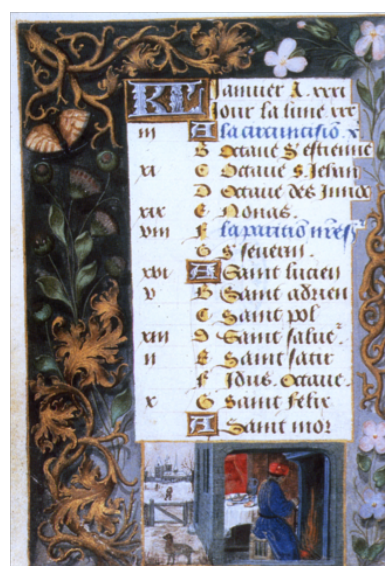 KL Januier A. xxxi
Jour la lune. xxx
iii A la circuncisiõ. x
B Octaue S' estienne
xi C Octaue s. Jehan
D Octaue des Innoc
xix E Nonas.
viii F la paritiõ nres
G s' seuerin.
xvi A Saint lucien
v B Saint adrien
C Saint pol
xiii D Saint salue
ii E Saint satir
F Idus. Octaue.
x G Saint felix
A Saint mor